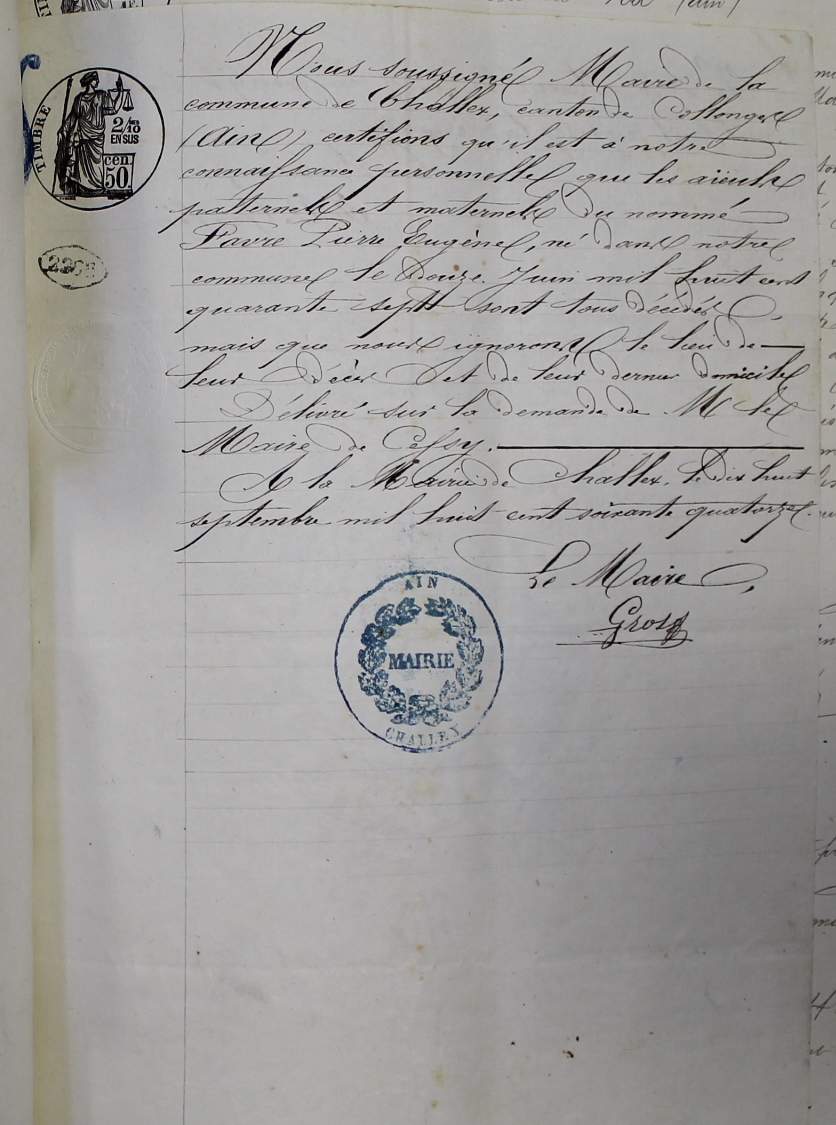 TIMBRE
2/10
EN SUS
cen
50
Nous soussigné Maire de la
commune de Challex, canton de Collonges
(Ain) certifions qu'il est à notre
connaissance personnelle que les aïeuls
paternels et maternels du nommé
Favre Pierre Eugène, né dans notre
commune le douze Juin mil huit cent
quarante sept sont tous décédés,
mais que nous ignorons le lieu de
leur décès et de leur dernier domicile
Délivré sur la demande de M le
Maire de Cessy.
A la Mairie de Challex, le dix huit
septembre mil huit cent soixante quatorze.
Le Maire,
Gros
AIN
MAIRIE
CHALLEX